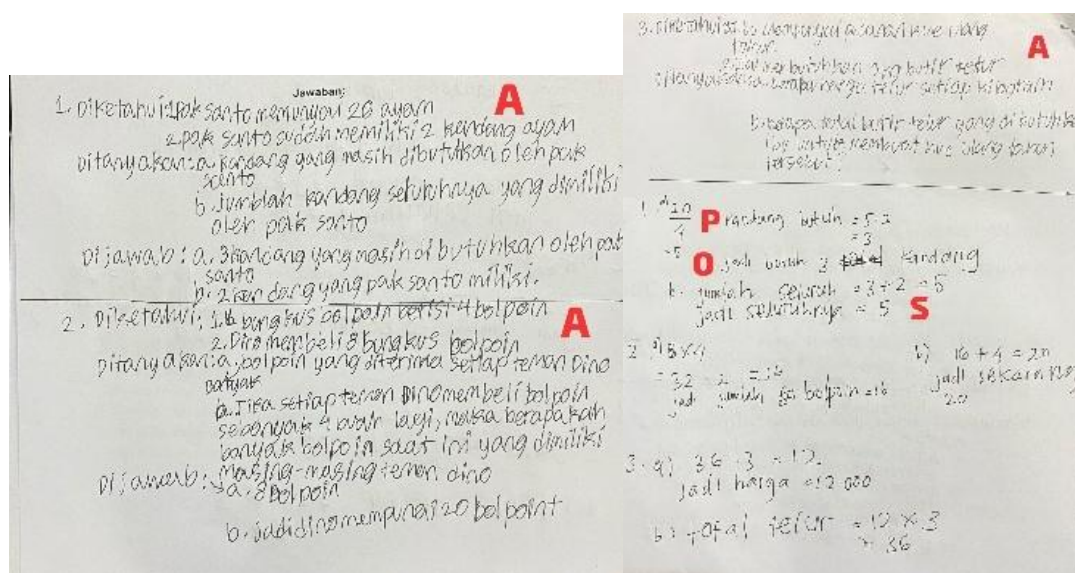 Jawaban:
A
1. Diketahui: 1. Pak Santo mempunyai 20 ayam
2. pak Santo sudah memiliki 2 kandang ayam
Ditanyakan: a. kandang yang masih dibutuhkan oleh pak
santo
b. Jumlah kandang seluruhnya yang dimiliki
oleh pak santo
Dijawab: a. 3 kandang yang masih di butuhkan oleh pak
santo
b. 2 kandang yang pak santo miliki.
2. Diketahui: 1. bungkus bolpoin berisi 4 bolpoin
A
2. Dino membeli 8 bungkus bolpoin
Ditanyakan: a. bolpoin yang diterima setiap teman Dino
banyak
b. Jika setiap teman Dino membeli bolpoin
sebanyak 4 buah lagi, maka berapakah
banyak bolpoin saat ini yang dimiliki
masing-masing teman dino
Dijawab: a. 8 Bolpoin
b. jadi dino mempunai 20 bolpoint
3. Diketahui:
kue ulang
A
butir telur
telur setiap kilogram
b. berapa total butir telur yang di butuhk
untuk membuat kue ulang tahun
tersebut?
1. a 20
4
P
kandang butuh = 5-2
=5
= 3
O
jadi butuh 3 kandang
b. jumlah seluruh = 3 + 2 = 5
jadi seluruhnya = 5
S
2. a) 8 x 4
= 32 : 2 = 16
jadi jumlah bolpoin = 16
b) 16 + 4 = 20
jadi sekarang
20
3. a) 36 : 3 = 12
jadi harga = 12 000
b) total telur = 12 x 3
= 36